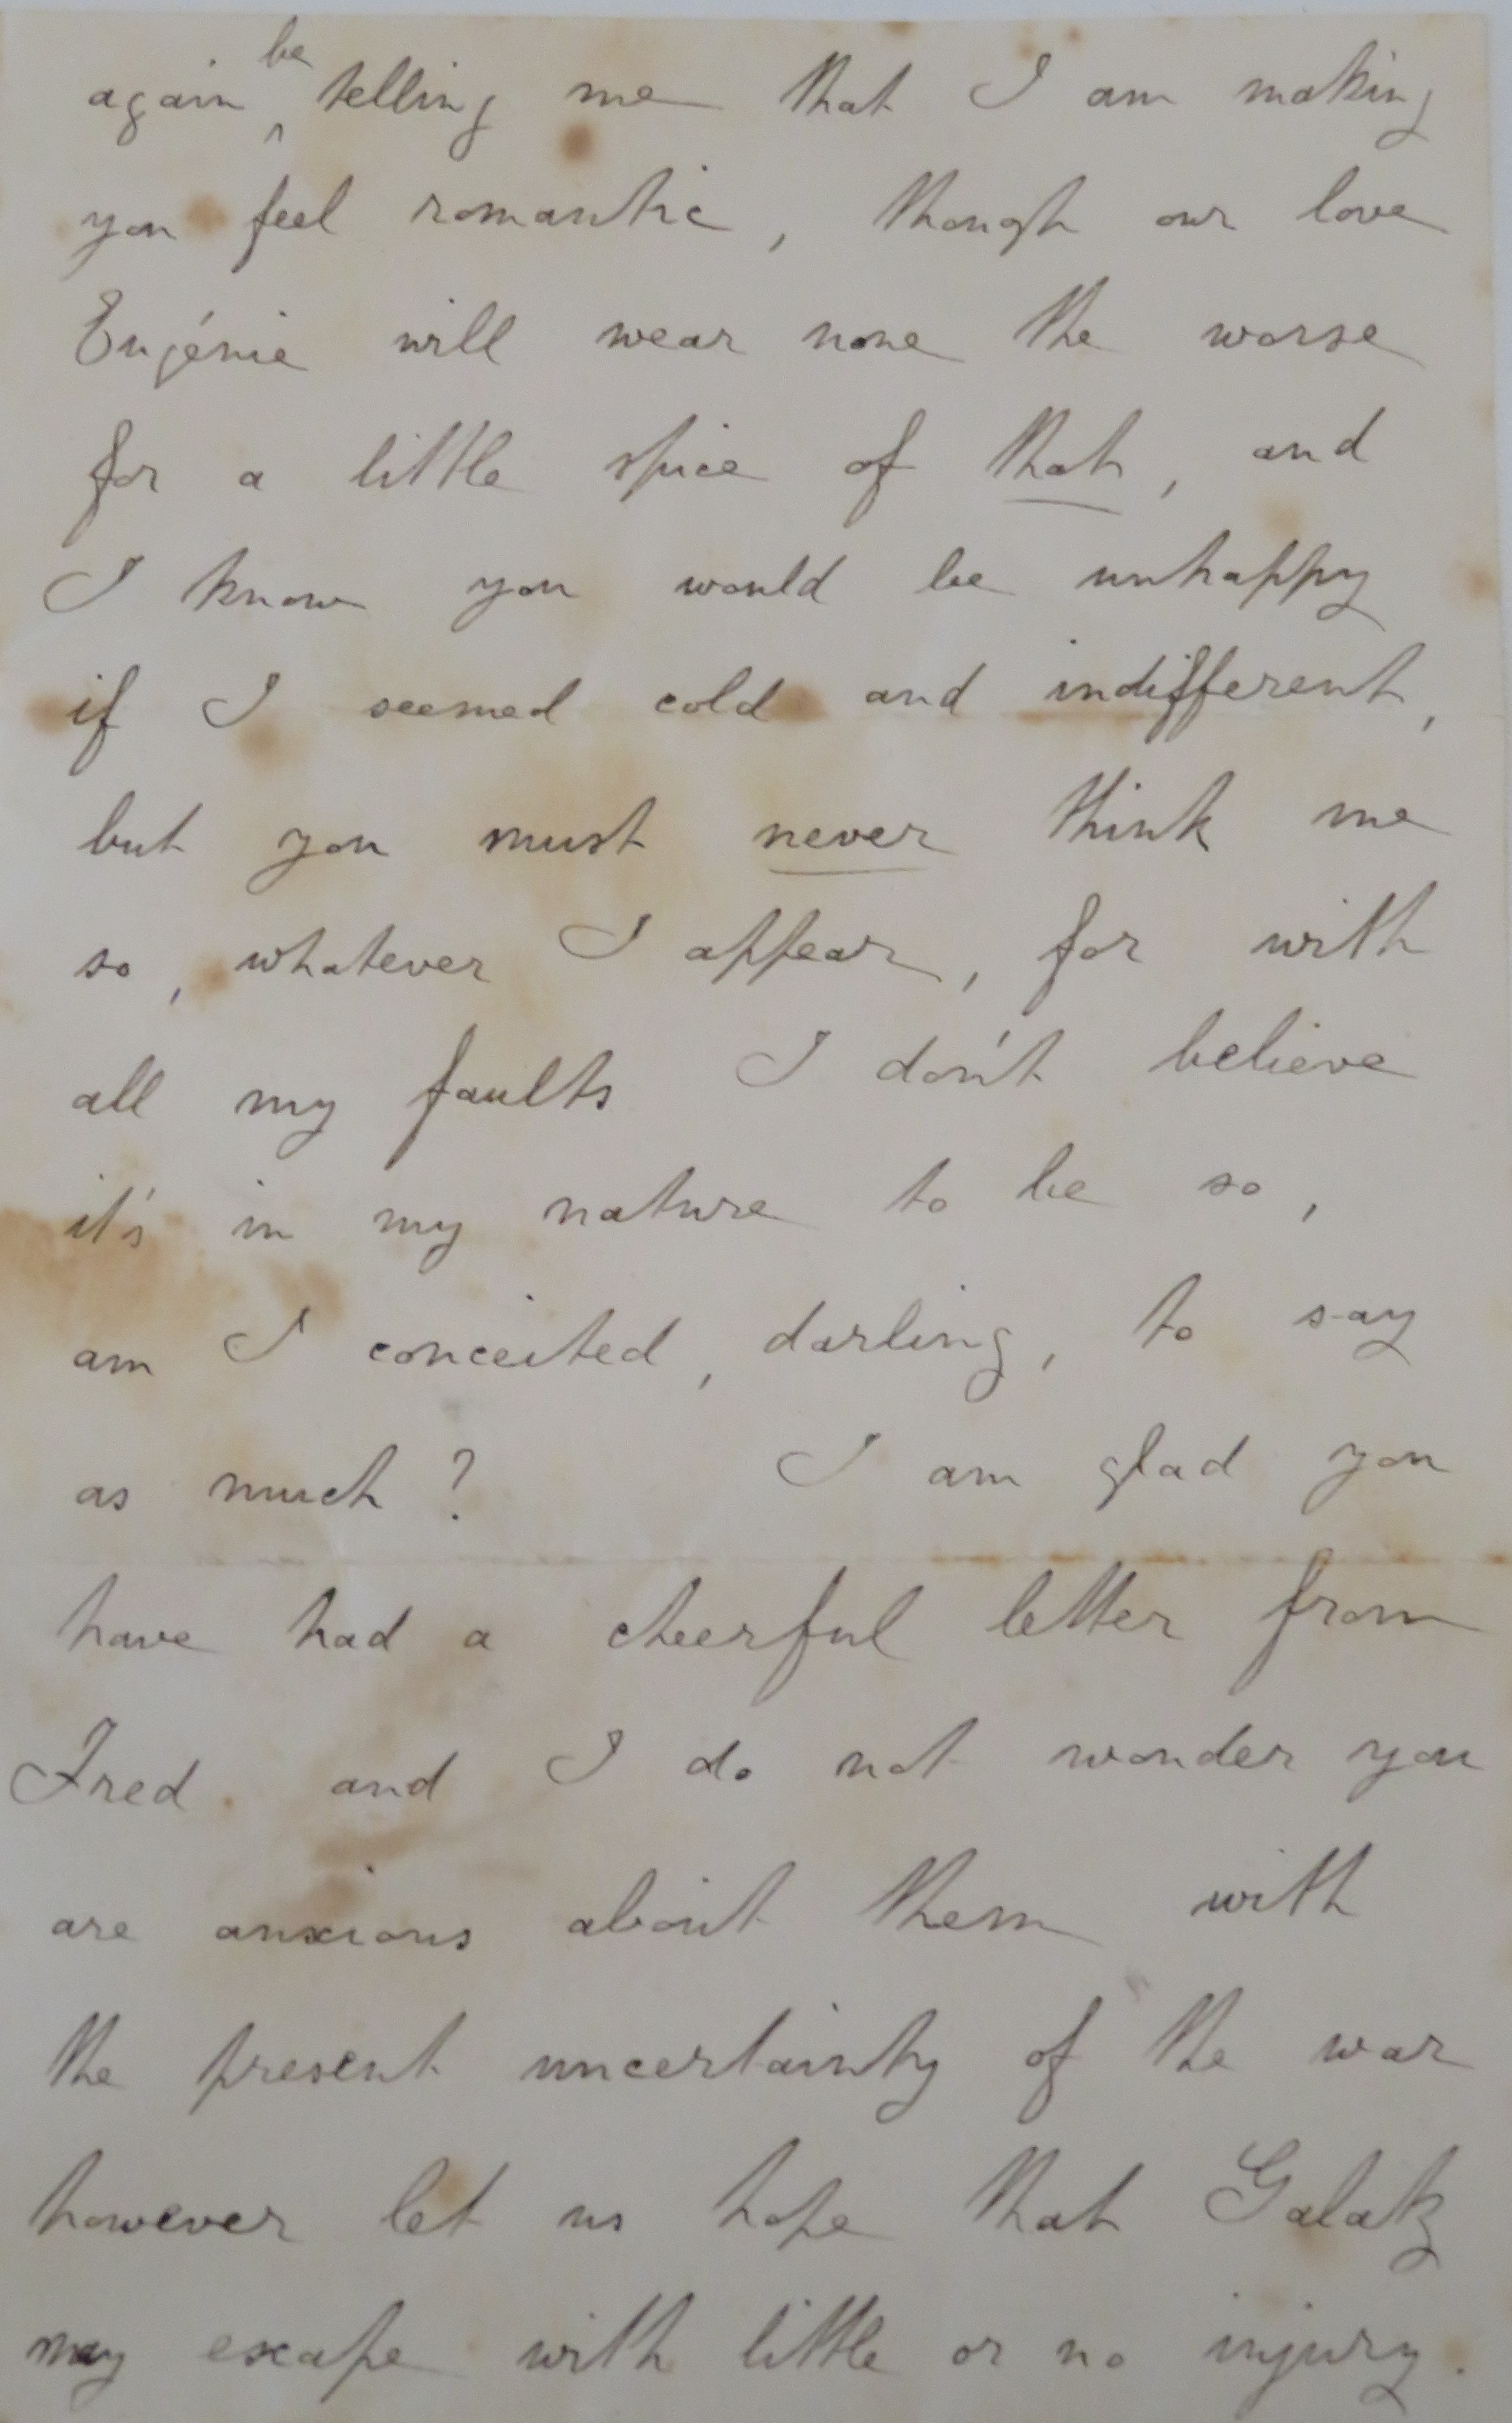 again be telling me that I am making
you feel romantic, though our love
Eugénie will wear none the worse
for a little spice of that, and
I know you would be unhappy
if I seemed cold and indifferent,
but you must never think me
so, whatever I appear, for with
all my faults I don't believe
it's in my nature to be so,
am I conceited, darling, to say
as much? I am glad you
have had a cheerful letter from
Fred and I do not wonder you
are anxious about them with
the present uncertainty of the war
however let us hope that Galatz
may escape with little or no injury.